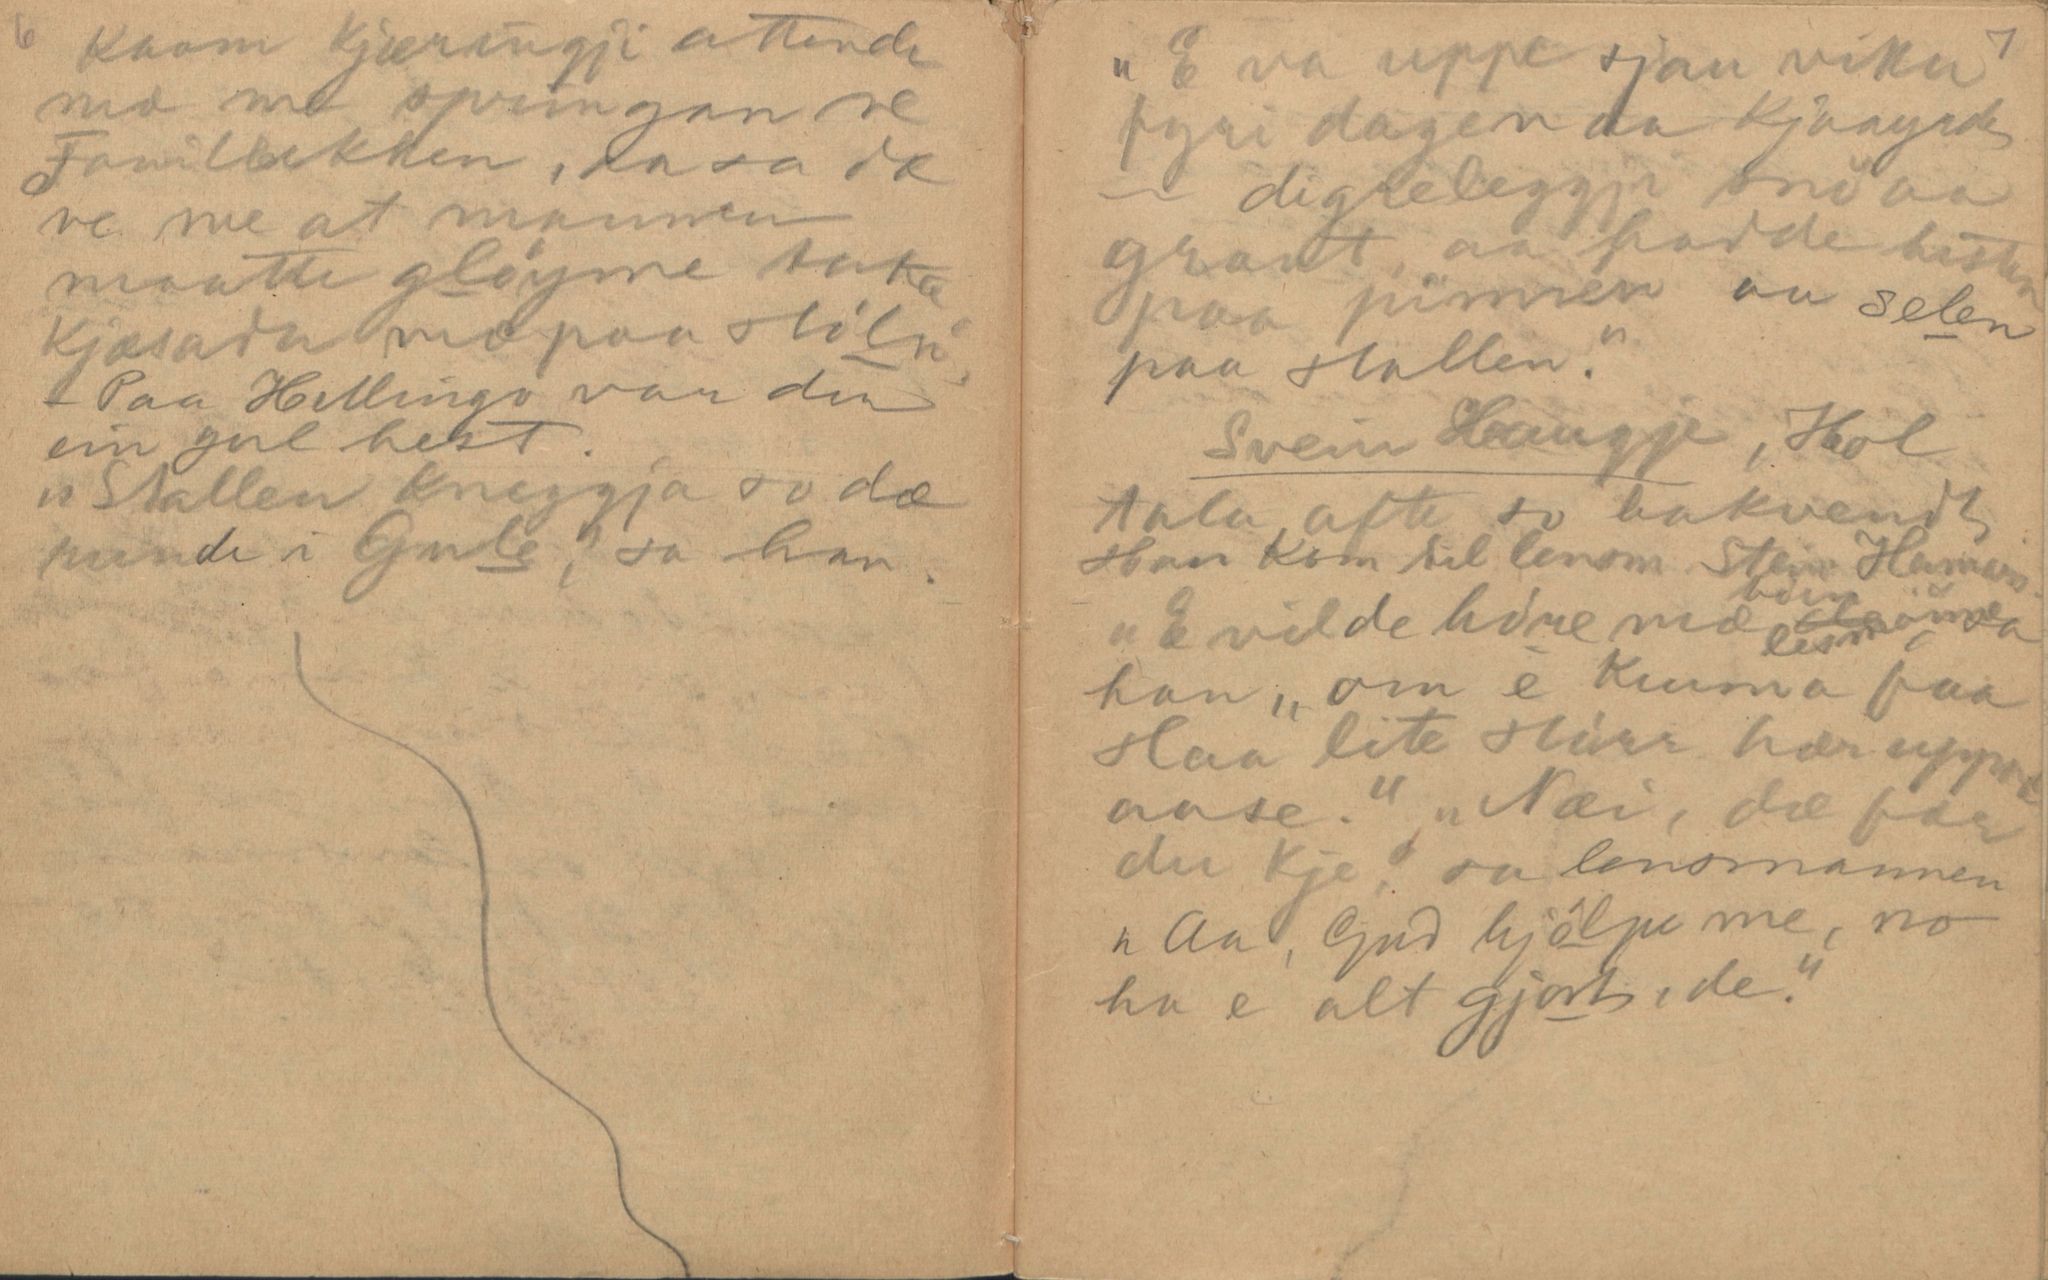 6
Kaam Kjæringji attende
mæ me springan ve
, aa sa dæ
ve me at mannen
maatte glöyme taka
Kjæsadn mæ paa stöln.
- Paa Hellingo var der
ein gul hest.
"Stallen kneggja so dæ
runde i Gule," sa han.
7
"E va uppe sjau viku
fyri dagen aa Kjaayrde
i digreleggji snö aa
grant, aa hadde hesten
paa pinnen aa selen
paa stallen."
Svein Haugje, Hol
tala ofte so bakvendt,
Han kom til lensm Stein
"E vilde höre mæ lensm sa
han, "om e kunna faa
slaa lite störr hær uppaa
aase." "Næi, dæ fær
du kje," sa lensmannen
"Aa, Gud hjölpe me, no
ha e alt gjort, de."